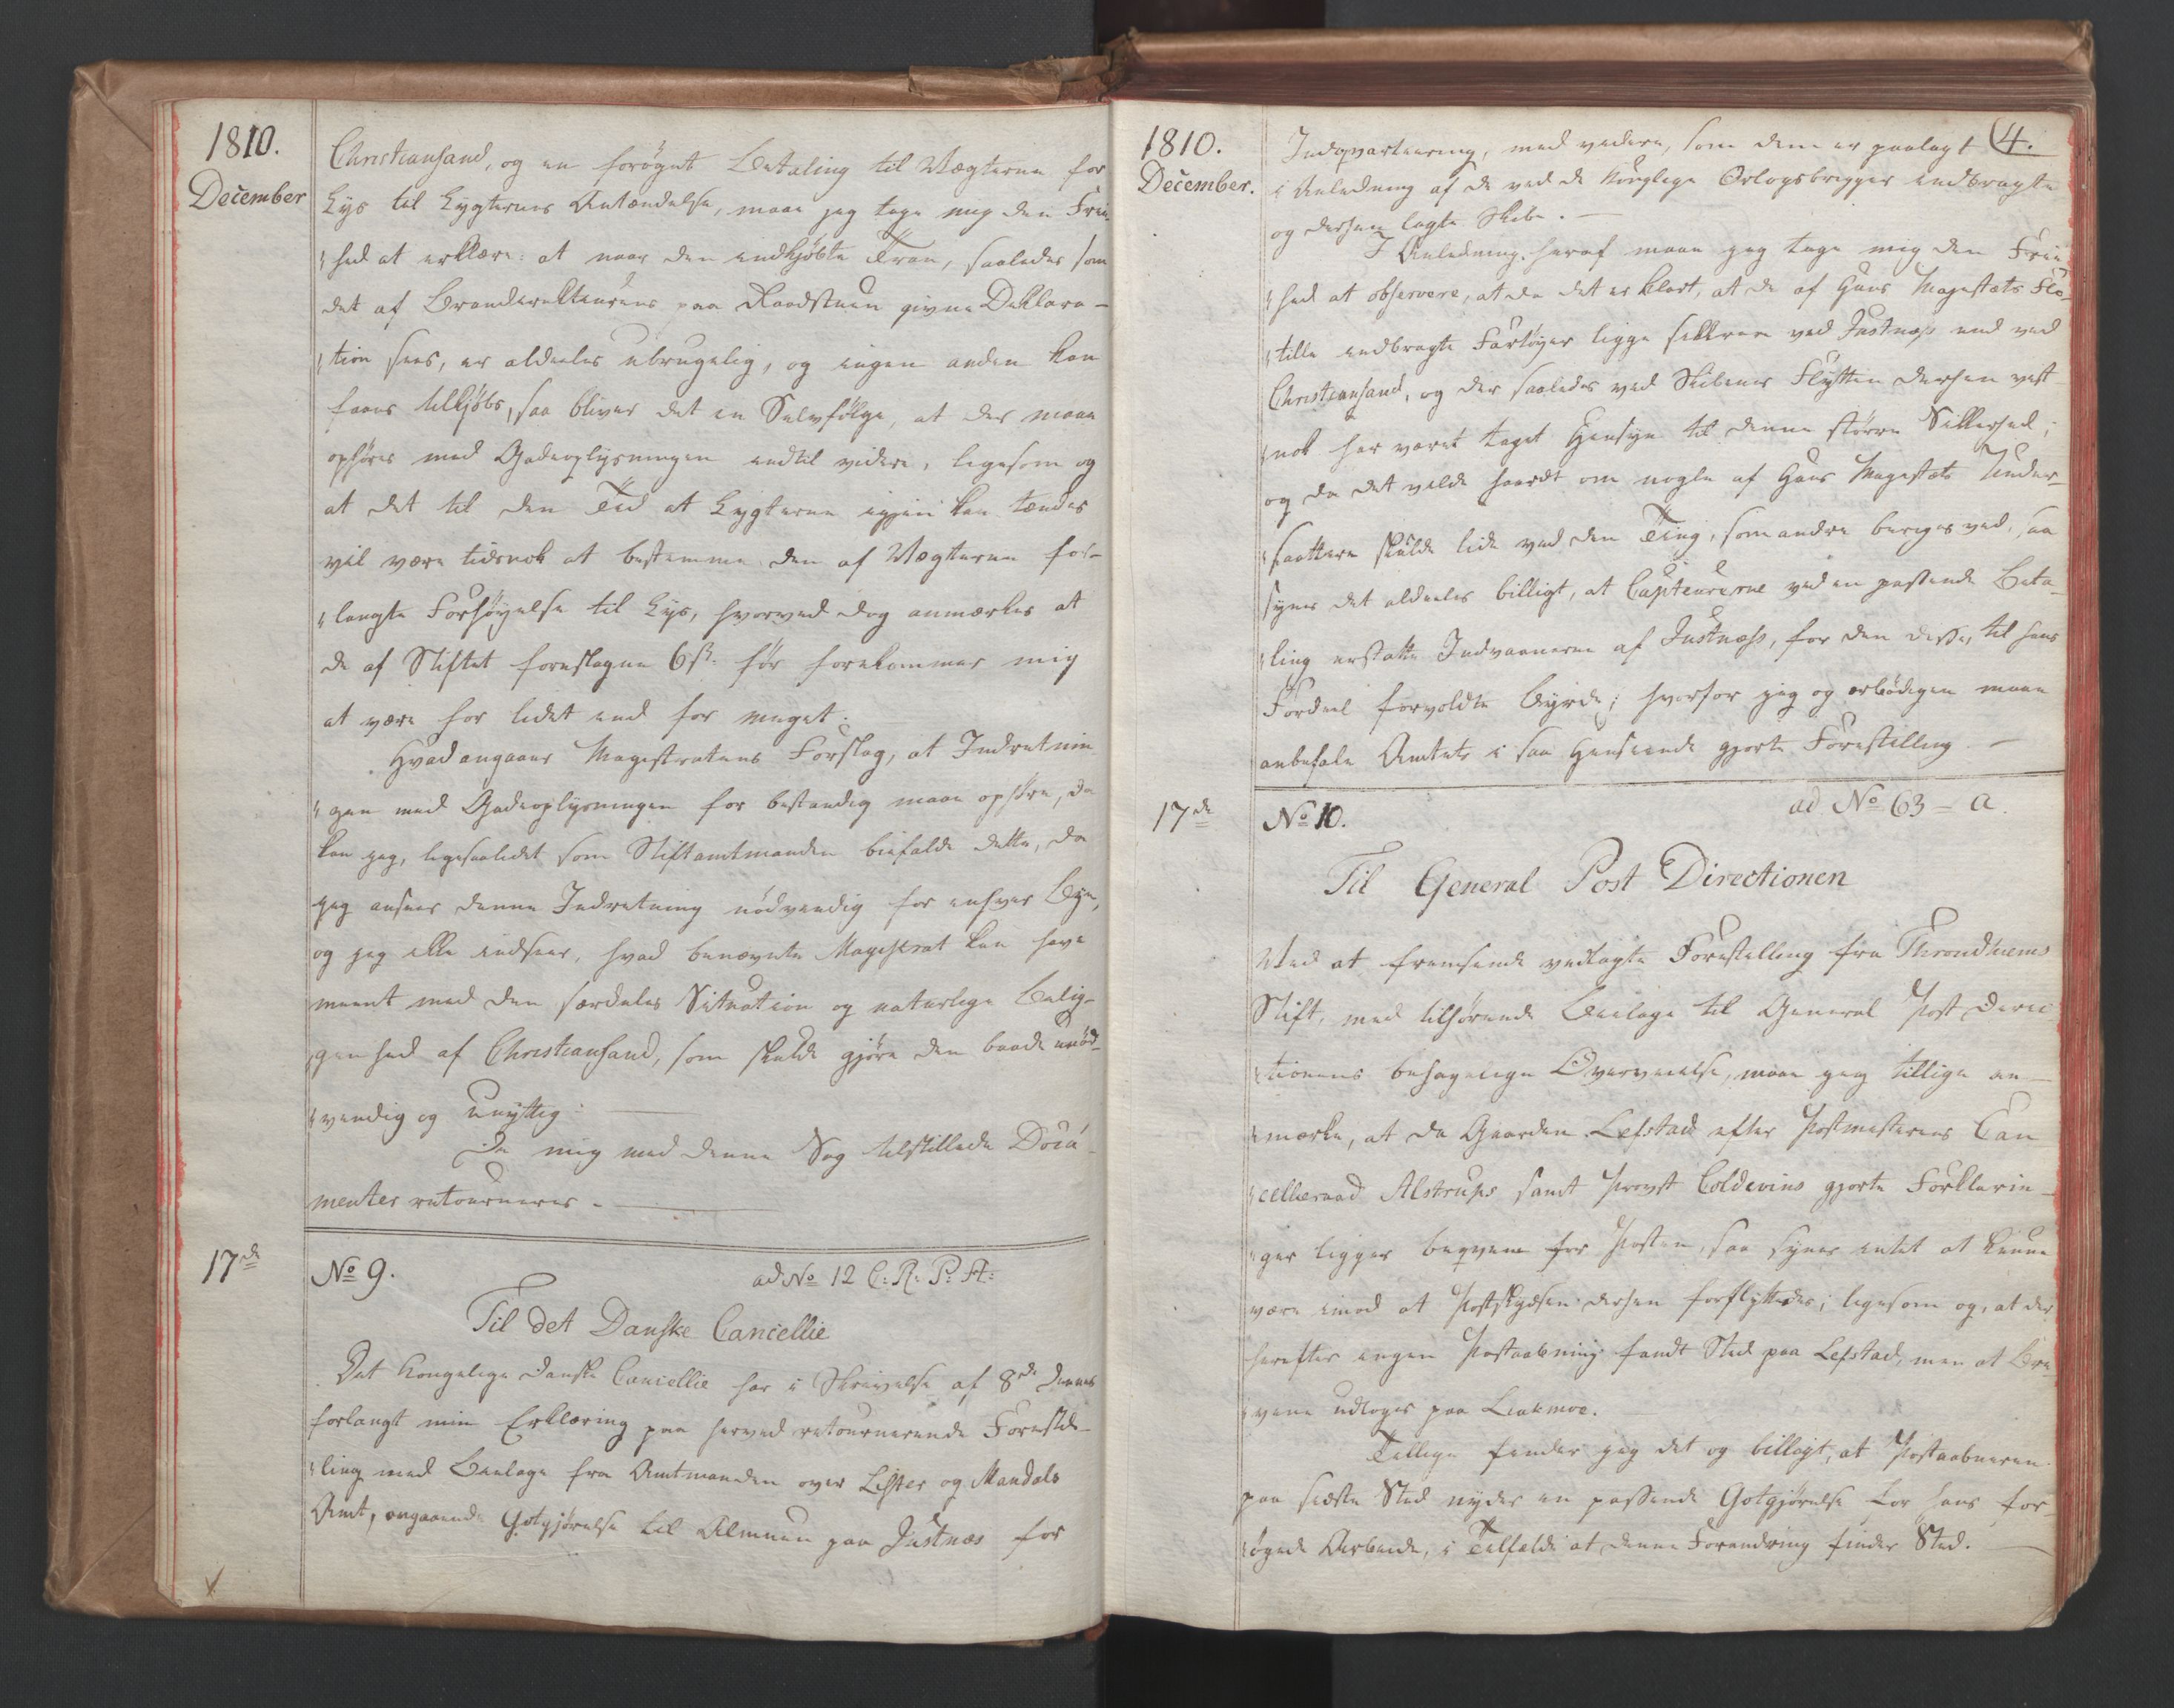 1810.
December
Christiansand, og en forøget Betaling til Vægterne for
Lys til Lygternes Antændelse, maae jeg tage mig den Frie-
"hed at erklære: at naar den indkjøbte Tran, saaledes som
det af Branddirecteurens paa Raadstuen givne Deklara-
"tion sees, er aldeeles ubrugelig, og ingen anden kan
faaes tilkjøbs, saa bliver det en Selvfølge, at der maae
ophøres med Gadeoplysningen indtil videre, ligesom og
at det til den Tid at Lygterne igjen kan tændes
vil være tidsnok at bestemme den af Vægterne for-
"langte Forhøyelse til Lys, hvorved dog anmærkes at
de af Stiftet foreslagne 6 s. før forekommer mig
at være for lidet end for meget.
Hvad angaaer Magistratens Forslag, at Indretnin
"gen med Gadeoplysningen for bestandig maae ophøre, da
kan jeg, ligesaalidet som Stiftamtmanden biefalde dette, da
jeg anseer denne Indretning nødvendig for enhver Bye,
og jeg ikke indseer, hvad benævnte Magistrat kan have
meent med den særdeles Situation og naturlige Belig-
"genhed af Christiansand, som skulde gjøre den baade unød-
"vendig og unyttig.
De mig med denne Sag tilstillede Docu-
menter retourneres.
17de
No 9.
ad No 12 C: R: P: A:
Til det Danske Cancellie
Det Kongelige Danske Cancellie har i Skrivelse af 8de dennes
forlangt min Erklæring paa herved retournerende Forestil-
"ling med Beilage fra Amtmanden over Lister og Mandals
Amt, angaaende Gotgjørelse til Almuen paa Justnæs for
1810.
December.
4.
Indqvarteering, med videre, som dem er paalagt
i Anledning af de ved de Konglige Orlogsbrigger indbragte
og derhen lagte Skibe.
I Anledning heraf maae jeg tage mig den Frie
"hed at observere, at da det er klart, at de af Hans Majestæts Flo-
"tille indbragte Fartøyer ligge sikkrere ved Justnæs end ved
Christiansand, og der saaledes ved Skibenes Flytten derhen vist
"nok har været taget Hensyn til denne større Sikkerhed;
og da det vilde haardt om nogle af Hans Majestæts Under-
"saatter skulde lide ved den Ting, som andre beriges ved, saa
synes det aldeeles billigt, at Capteurerne ved en passende Beta-
"ling erstatte Indvaanerne af Justnæss, for den disse, til hans
Fordeel forvoldte Byrde; hvorfor jeg og ærbødigen maae
anbefale Amtets i saa Henseende gjorte Forestilling
17de
No 10.
ad No 63 - a.
Til General Post Directionen
Ved at fremsende vedlagte Forestilling fra Throndhiems
Stift, med tilhørende Beilage til General Post Direc
"tionens behagelige Overveielse, maae jeg tillige an-
"mærke, at da Gaarden Lefstad efter Postmesterens Can
"cellieraad Alstrups samt Provst Coldevins gjorte Forklarin-
"ger ligger beqvem for Posten, saa synes intet at kunne
være imod at Postskydsen derhen forflyttedes; ligesom og, at der
herefter ingen Postaabning fandt Sted paa Lefstad, men at Bre
"vene udtoges paa Liakmoe.
Tillige finder jeg det og billigt, at Postaabneren
paa sidste Sted nyder en passende Gotgjørelse for hans for-
"øgede Arbeide, i Tilfælde at denne Forandring finder Sted.